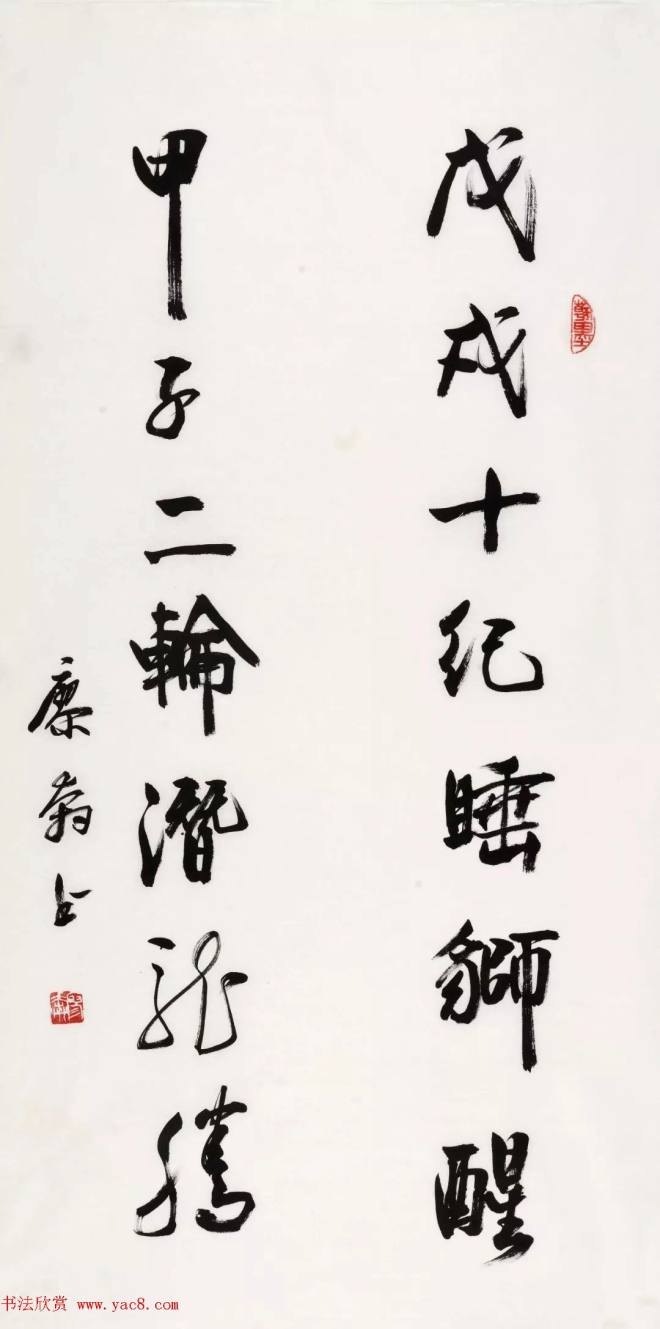 戊戌十纪睡獅醒
甲子二輪潛龙騰
廖
书法欣赏 www.yac8.com